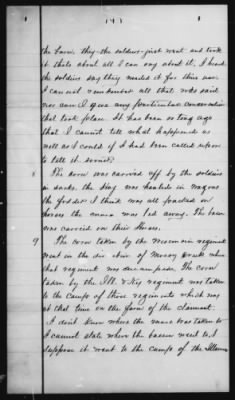 (4)
the barn, they - the soldiers - just went and took
it thats about all I can say about it, I heard
the soldiers say they needed it for their use.
I can not remember all that was said
nor can I give any particular conversation
that took place. It has been so long ago
that I cannot tell what happened as
well as I could if I had been called upon
to tell it sooner.
8 The corn was carried off by the soldiers
in sacks. the hay was hauled in wagons
the fodder I think was all packed on
horses the mare was led away. The bacon
was carried on their horses.
9 The corn taken by the Wisconsin regiment
went in the direction of Mossy Creek where
that regiment was encamped. The corn
taken by the Ill. & Ky regiment was taken
to the camps of those regiments which was
at that time on the farm of the claimant.
I dont know where the mare was taken to
I cannot state where the bacon went to. I
suppose it went to the camps of the Illinois